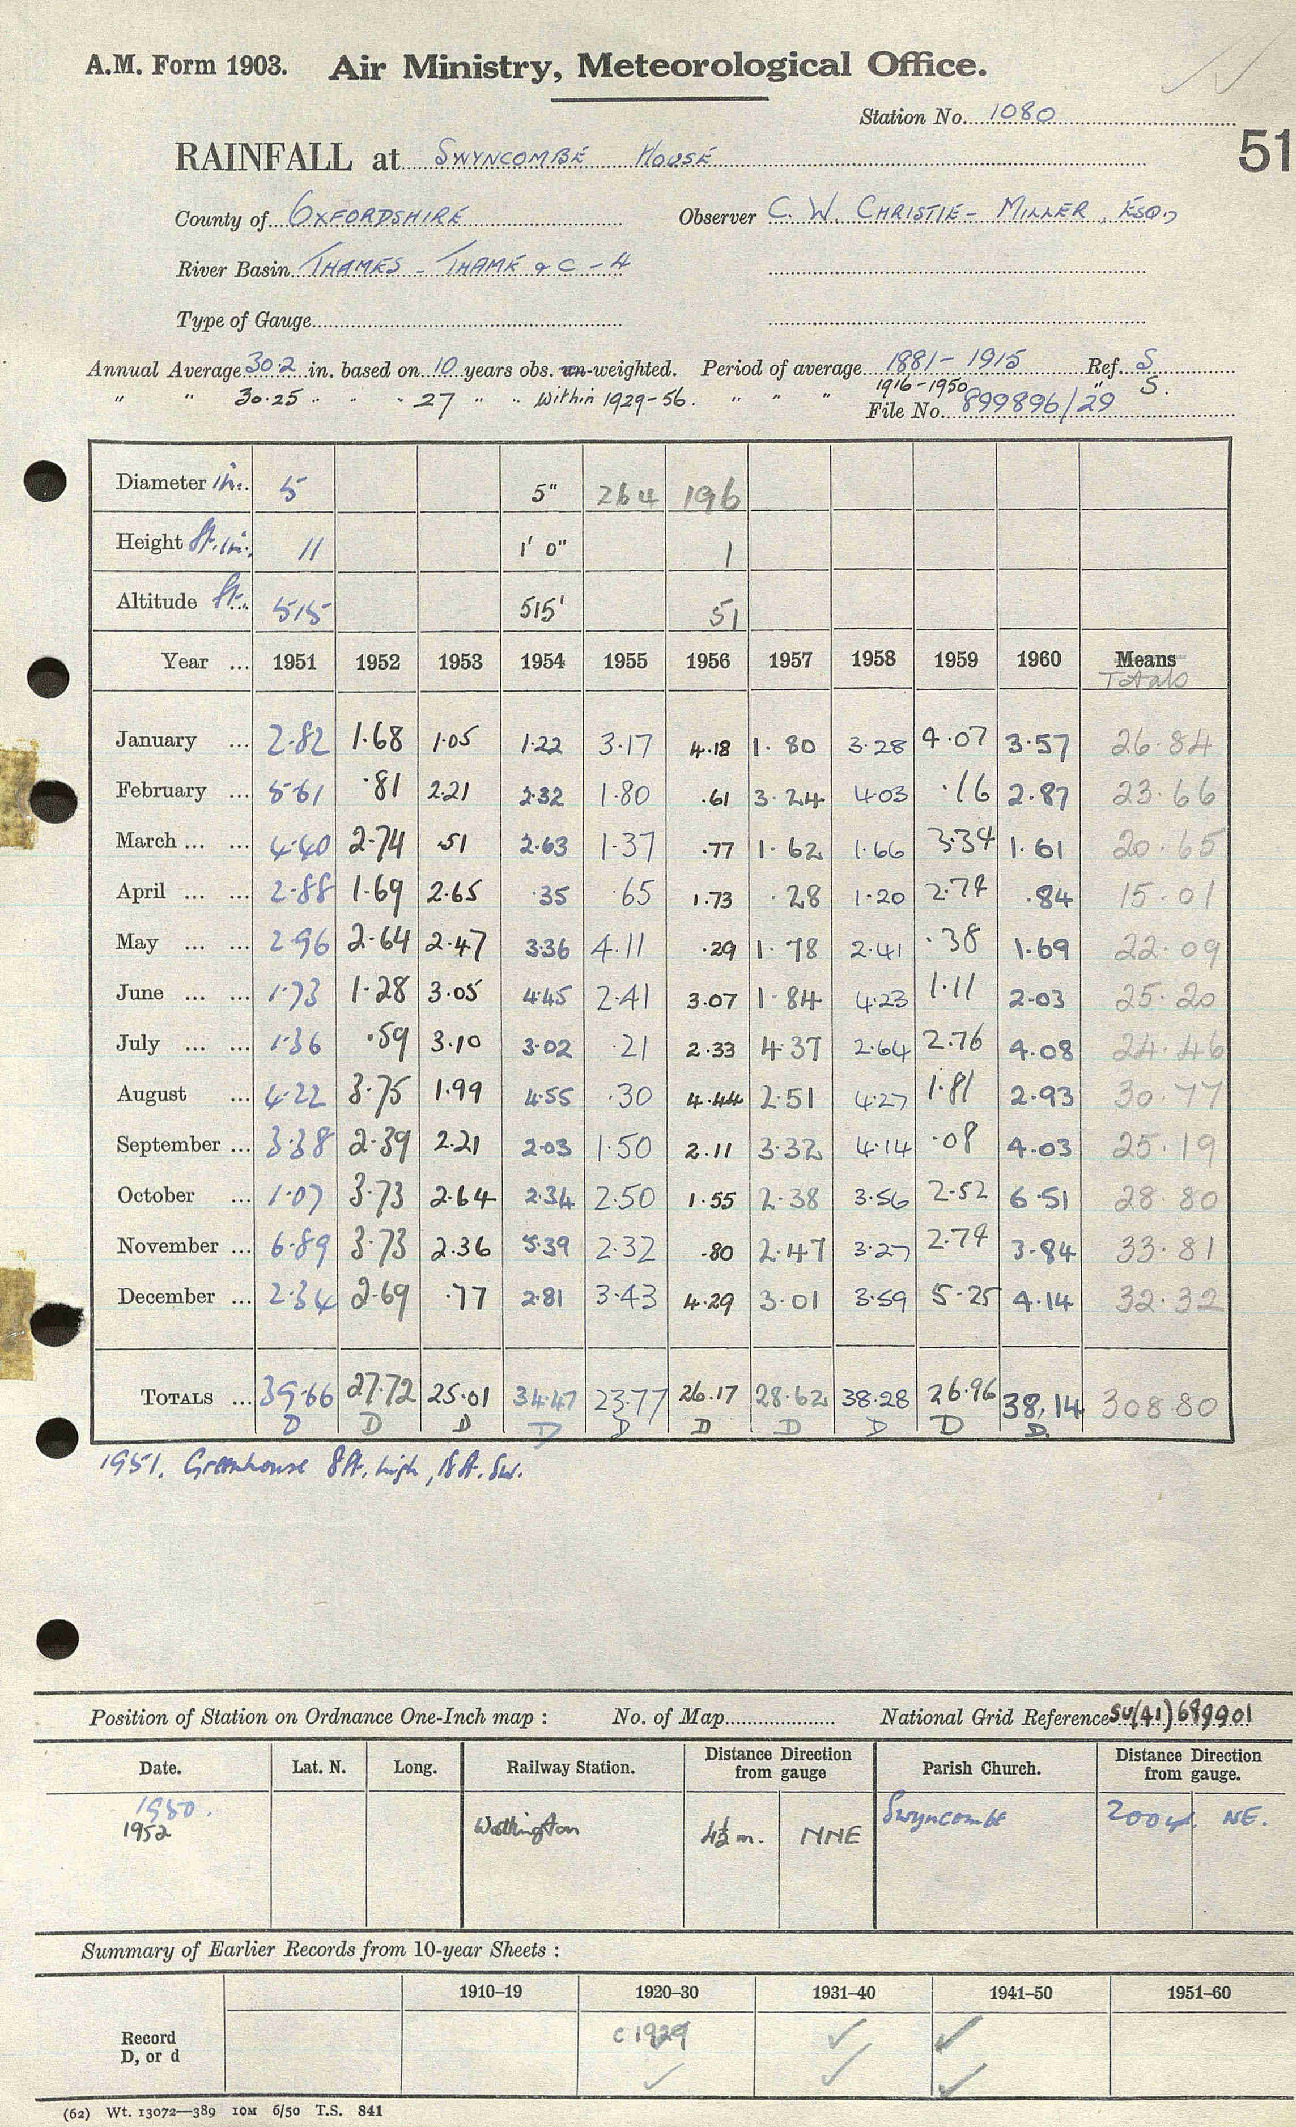 A.M. Form 1903. Air Ministry, Meteorological Office.
Station No. 1080
51
RAINFALL at SWYNCOMBE HOUSE
County of OXFORDSHIRE Observer C. W. CHRISTIE-MILLER, ESQ.,
River Basin THAMES - THAME & C - 4
Type of Gauge
Annual Average 30.2 in. based on 10 years obs. un-weighted. Period of average 1881-1915 Ref. S
" " 30.25 " " " 27 " " Within 1929-56. " " " 1916-1950 " S.
File No. 899896/29
Diameter in. 5 5" 264 196
Height ft. in. 11 1' 0" 1
Altitude ft. 515 515' 51
Year ... 1951 1952 1953 1954 1955 1956 1957 1958 1959 1960 Means
Totals
January ... 2.82 1.68 1.05 1.22 3.17 4.18 1.80 3.28 4.07 3.57 26.84
February ... 5.61 .81 2.21 2.32 1.80 .61 3.24 4.03 .16 2.87 23.66
March ... ... 4.40 2.74 .51 2.63 1.37 .77 1.62 1.66 3.34 1.61 20.65
April ... ... 2.88 1.69 2.65 .35 .65 1.73 .28 1.20 2.74 .84 15.01
May ... ... 2.96 2.64 2.47 3.36 4.11 .29 1.78 2.41 .38 1.69 22.09
June ... ... 1.73 1.28 3.05 4.45 2.41 3.07 1.84 4.23 1.11 2.03 25.20
July ... ... 1.36 .59 3.10 3.02 .21 2.33 4.37 2.64 2.76 4.08 24.46
August ... 4.22 3.75 1.99 4.55 .30 4.44 2.51 4.27 1.81 2.93 30.77
September ... 3.38 2.39 2.21 2.03 1.50 2.11 3.32 4.14 .08 4.03 25.19
October ... 1.07 3.73 2.64 2.34 2.50 1.55 2.38 3.56 2.52 6.51 28.80
November ... 6.89 3.73 2.36 5.39 2.32 .80 2.47 3.27 2.74 3.84 33.81
December ... 2.34 2.69 .77 2.81 3.43 4.29 3.01 3.59 5.25 4.14 32.32
TOTALS ... 39.66 27.72 25.01 34.47 23.77 26.17 28.62 38.28 26.96 38.14 308.80
D D D D D D D D D D.
1951. Greenhouse 8ft. high, 18ft. SW.
Position of Station on Ordnance One-Inch map : No. of Map National Grid Reference SU(41)689901
Date. Lat. N. Long. Railway Station. Distance Direction from gauge Parish Church. Distance Direction from gauge.
1950. Swyncombe 200 yd. NE.
1952 Watlington 4½ m. NNE
Summary of Earlier Records from 10-year Sheets :
1910-19 1920-30 1931-40 1941-50 1951-60
Record c 1929 ✓ ✓
D, or d ✓ ✓ ✓
(62) Wt. 13072—389 10M 6/50 T.S. 841